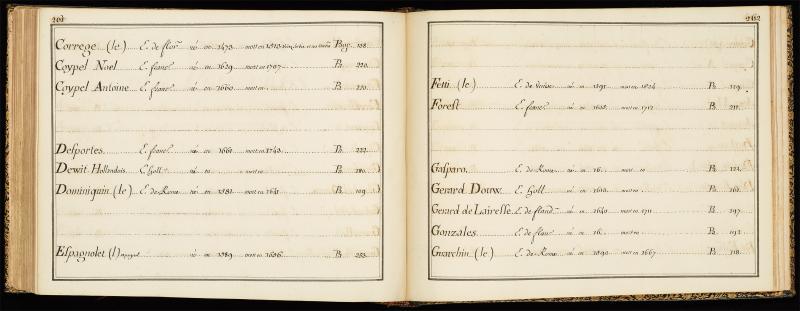 Correge (le) E. de flor.ce né en 1473 mort en 1513 Pag. 138.
Coypel Noel E. franc.e né en 1629 mort en 1707 Pa. 220.
Coypel Antoine E. franc.e né en 1660 mort en Pa. 220.
Desportes E. franc.e né en 1661 mort en 1743 Pa. 222.
Dewit Hollandois E. holl. né en mort en Pa. 180.
Dominiquin (le) E. de Rome né en 1581 mort en 1641 Pa. 109.
Espagnolet (l') né en 1589 mort en 1656 Pa. 253.
262
Fetti (le) E. de Venise né en 1591 mort en 1624 Pa. 129.
Forest E. franc.e né en 1636 mort en 1712 Pa. 211.
Gasparo E. de Rome né en 16 mort en Pa. 124.
Gerard Douw E. holl. né en 1613 mort en Pa. 161.
Gerard de Lairesse E. de fland. né en 1640 mort en 1711 Pa. 197.
Gonzales E. de flan. né en 16 mort en Pa. 192.
Guerchin (le) E. de Rome né en 1590 mort en 1667 Pa. 118.